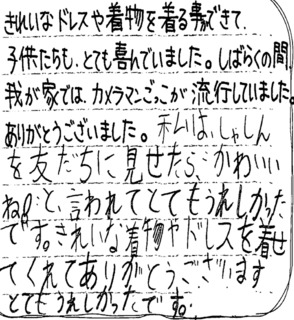 きれいなドレスや着物を着る事ができて、
子供たちも、とても喜んでいました。しばらくの間、
我が家では、カメラマンごっこが流行していました。
ありがとうございました。私は、しゃしん
を友だちに見せたら、かわいい
ね。と、言われてとてもうれしかった
です。きれいな着物やドレスを着せ
てくれてありがとうございます
とてもうれしかったです。